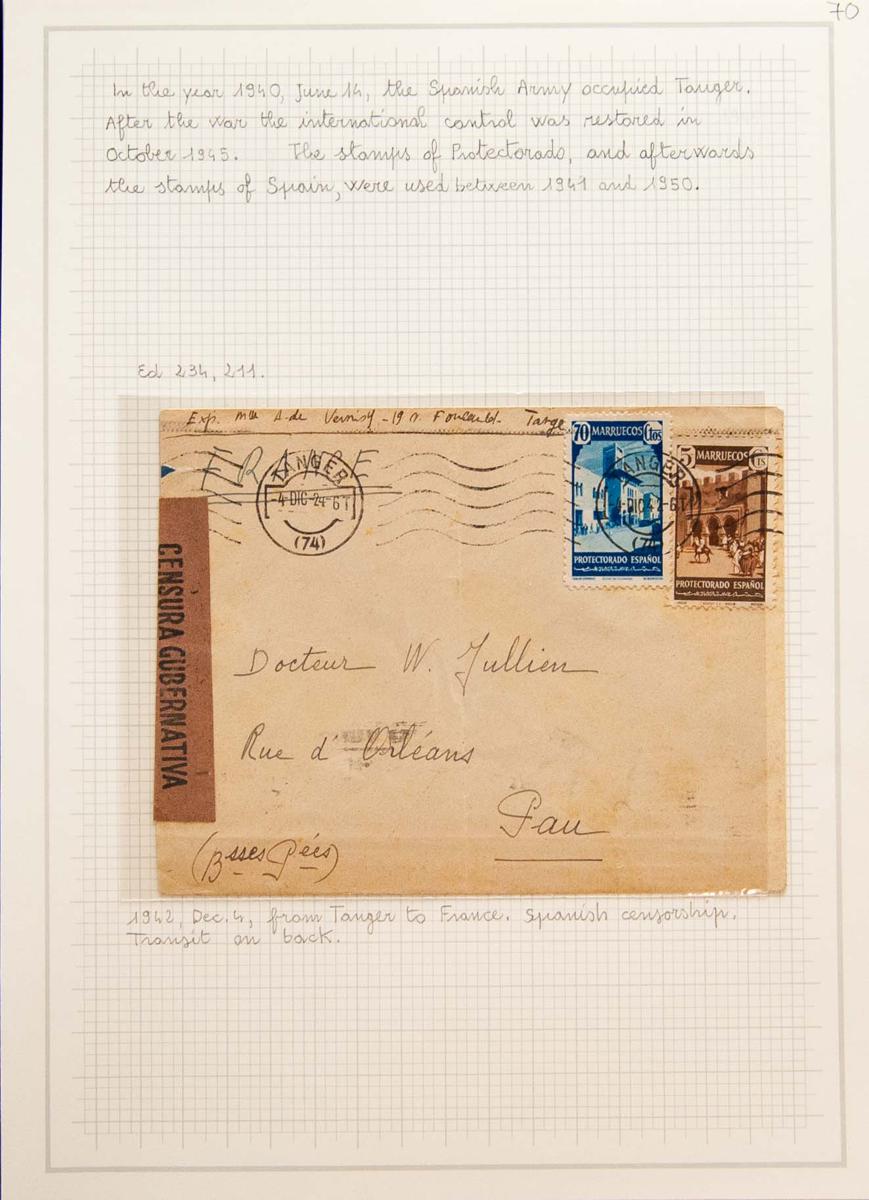 70
In the year 1940, June 14, the Spanish Army occupied Tanger.
After the war the international control was restored in
October 1945. The stamps of Protectorado, and afterwards
the stamps of Spain, were used between 1941 and 1950.
Ed 234, 211.
Exp. Mlle A. de - 19 r. Foucauld - Tange
FRANCE
TANGER
4-DIC-24-6T
(74)
70 MARRUECOS Ctos
TANGER
4-DIC 42-6T
(74)
PROTECTORADO ESPAÑOL
5 MARRUECOS CTS
PROTECTORADO ESPAÑOL
CENSURA GUBERNATIVA
Docteur W. Jullien
Rue d'Orléans
Pau
(Bsses Pées)
1942, Dec. 4, from Tanger to France. Spanish censorship.
Transit on back.